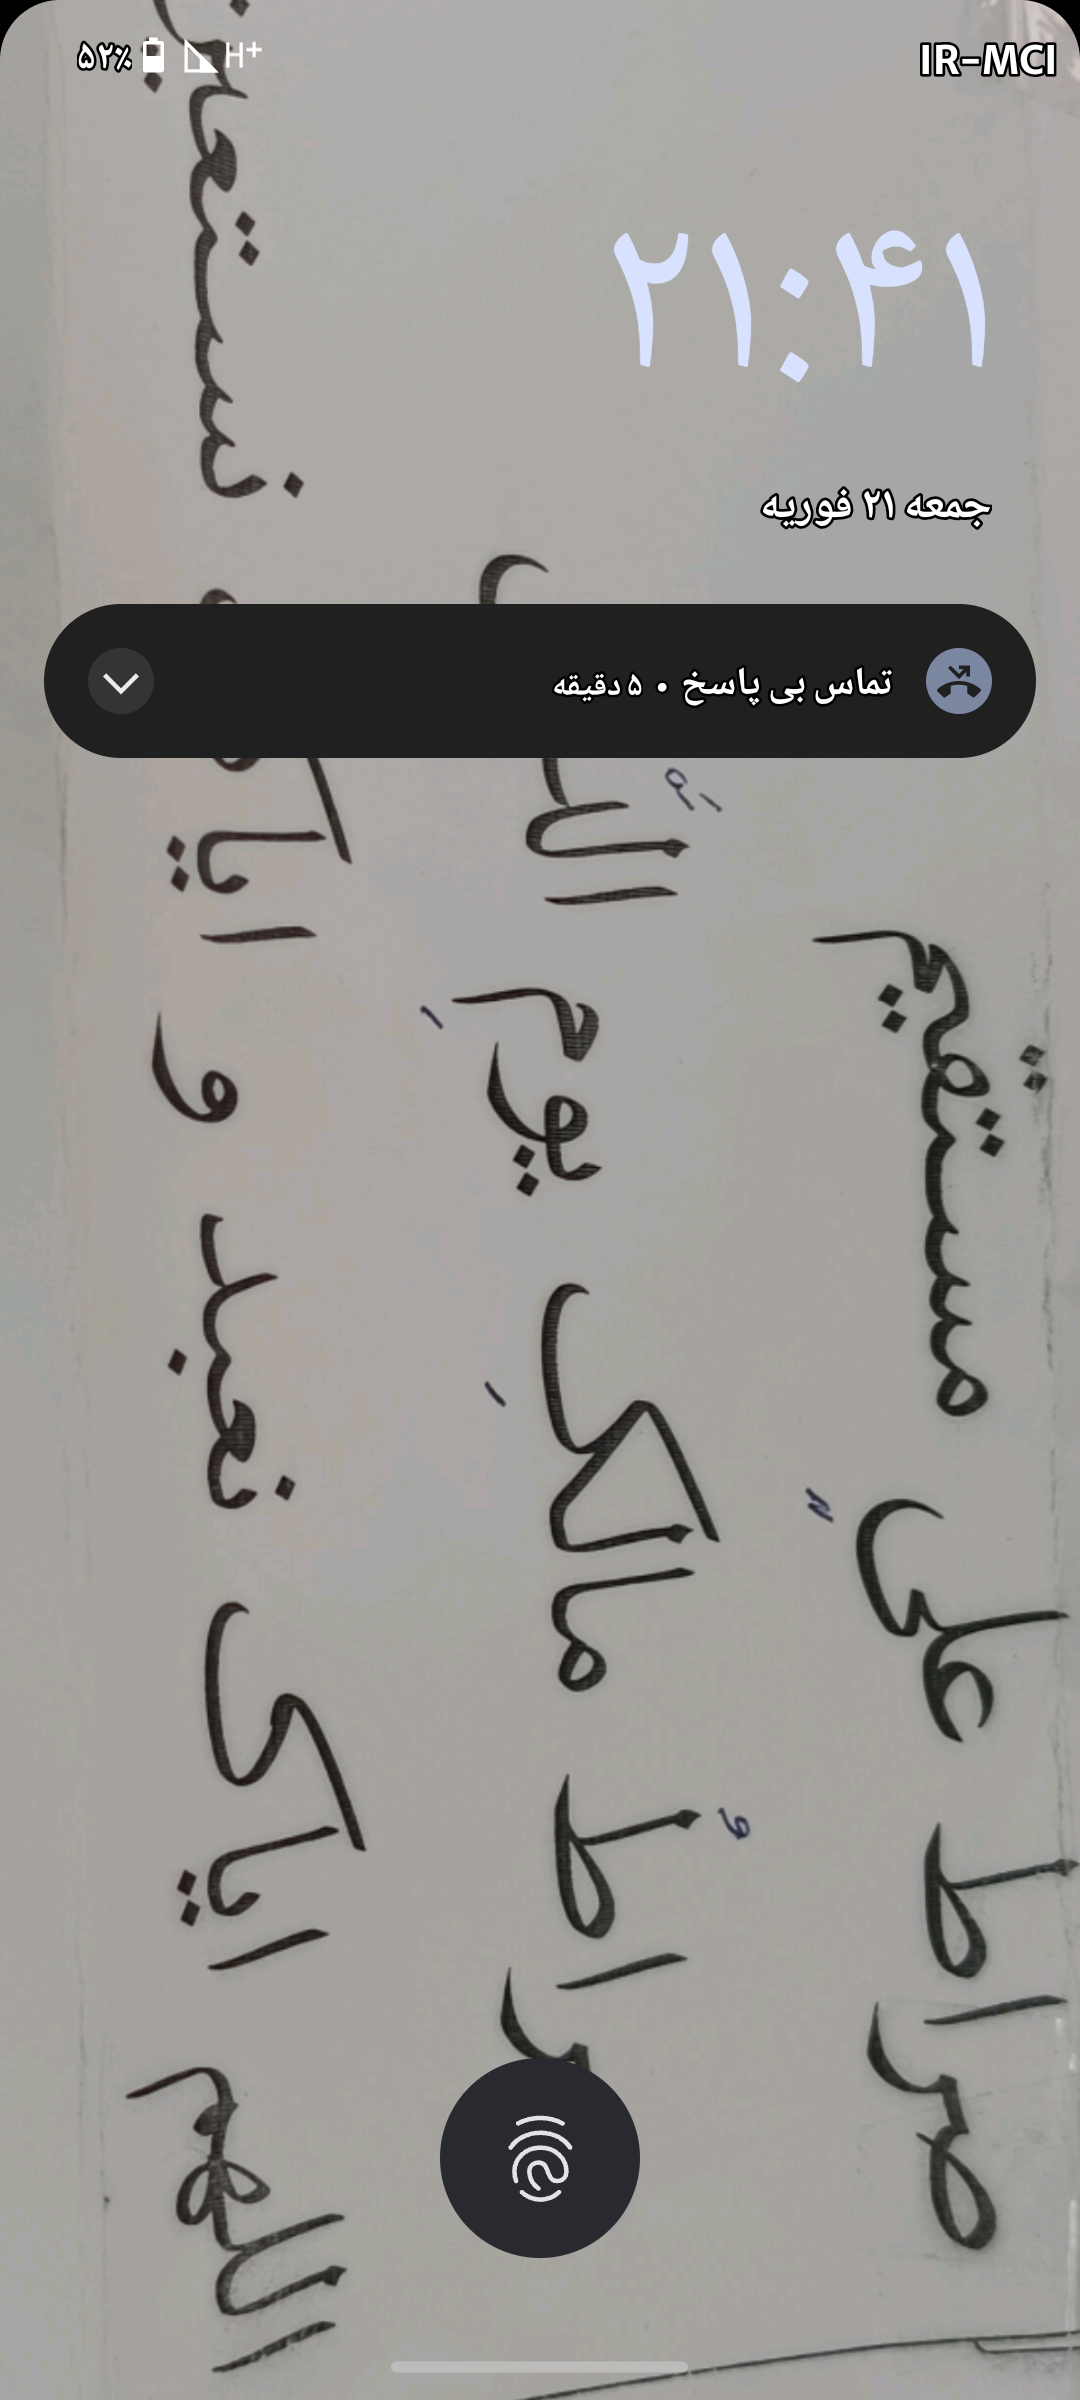 ۵۲٪ H+ IR-MCI
۲۱:۴۱
جمعه ۲۱ فوریه
تماس بی پاسخ • ۵ دقیقه
صراط علیٍ مستقیم
صراطُ مالکِ یومِ
اللهم ایاک نعبد و ایاک نستعین